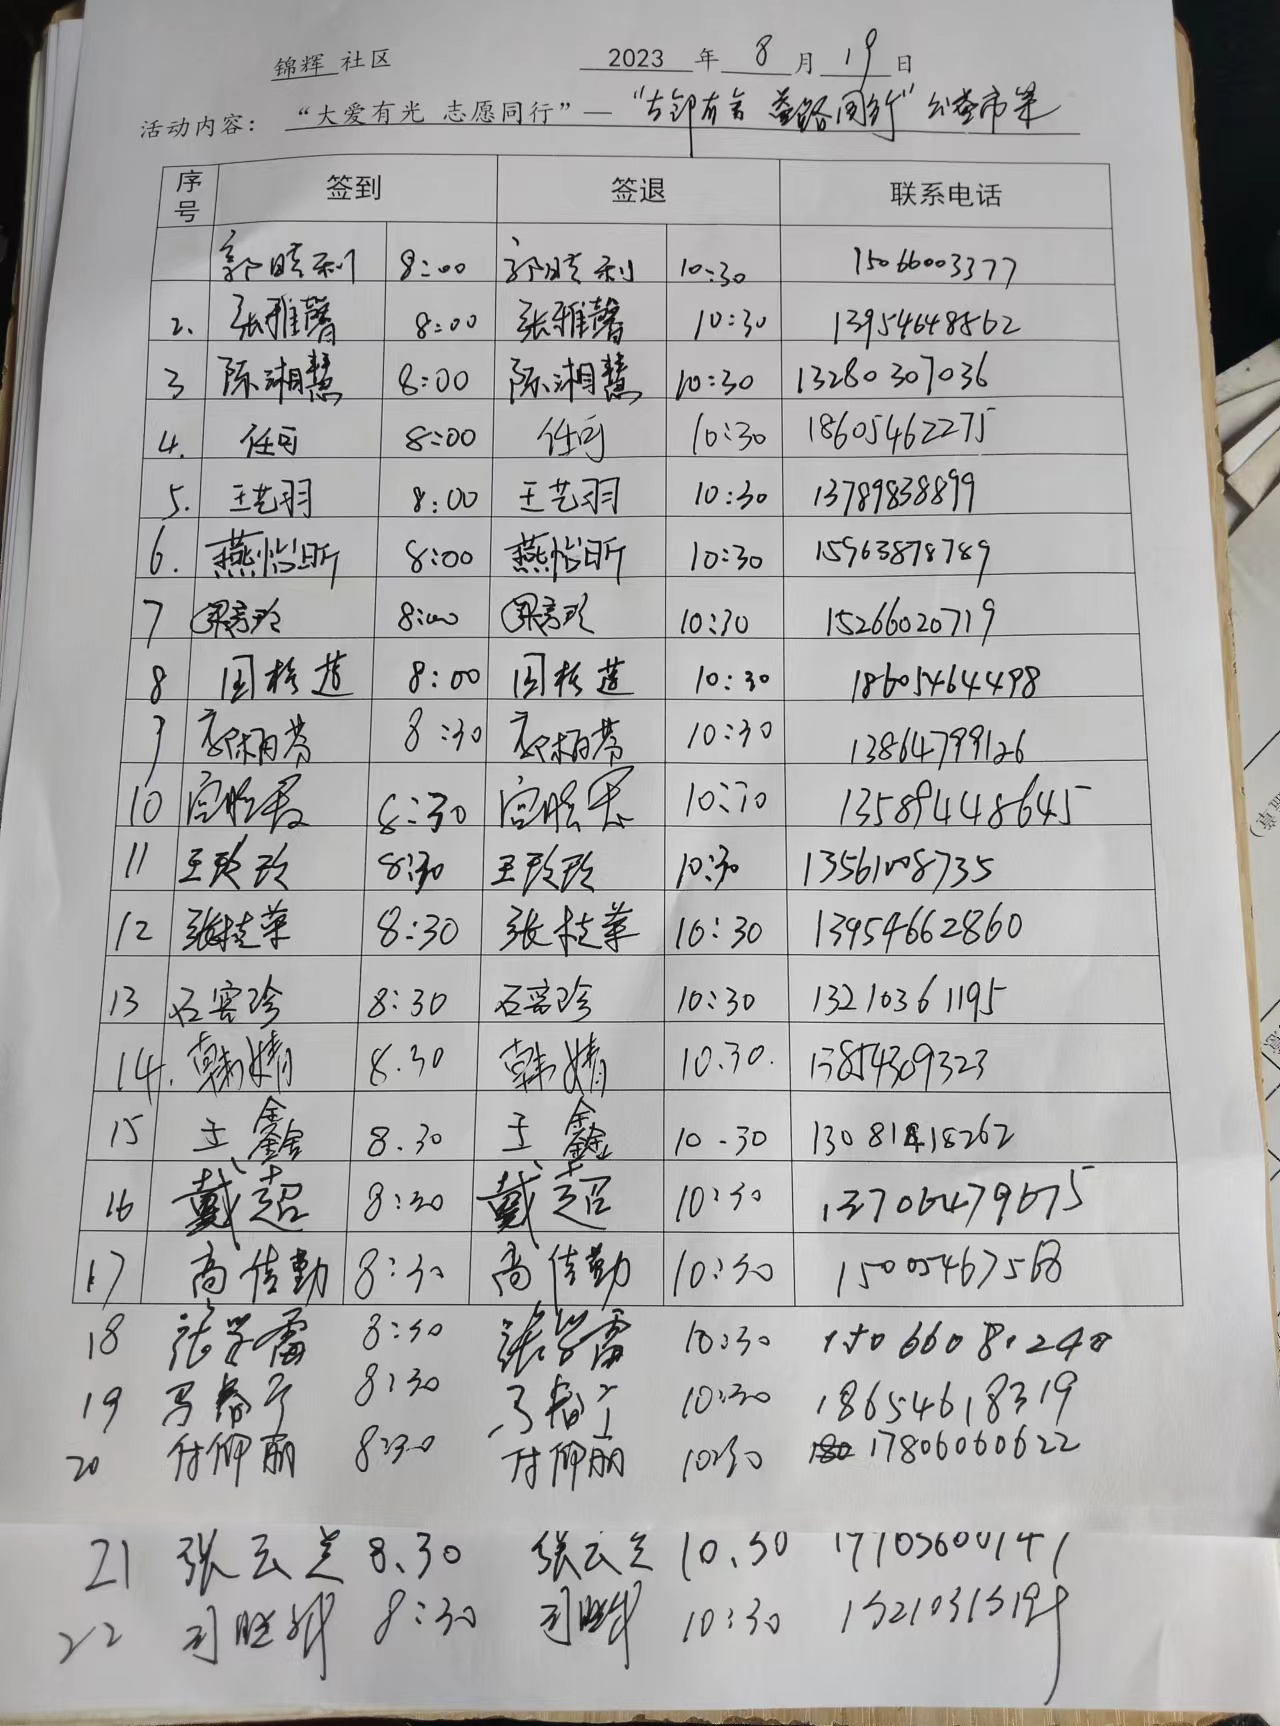 锦辉 社区 2023 年 8 月 19 日
活动内容: “大爱有光 志愿同行”— 同行” 公益市集
序号 签到 签退 联系电话
郭晓利 8:00 郭晓利 10:30 15066003377
2. 张雅馨 8:00 张雅馨 10:30 13954648562
3 陈湘慧 8:00 陈湘慧 10:30 13280307036
4. 任可 8:00 任可 10:30 18605462275
5. 王艺羽 8:00 王艺羽 10:30 13789838899
6. 燕怡昕 8:00 燕怡昕 10:30 15963878789
7 8:00 10:30 15266020719
8 8:00 10:30 18605464498
9 8:30 10:30 13864799126
10 8:30 10:30 13589448645
11 王玲玲 8:30 王玲玲 10:30 13561008735
12 张桂荣 8:30 张桂荣 10:30 13954662860
13 石客珍 8:30 石客珍 10:30 13210361195
14. 韩婧 8.30 韩婧 10.30. 13854309323
15 王鑫 8.30 王鑫 10.30
16 戴超 8:30 戴超 10:30 13706479675
17 高佳勤 8:30 高佳勤 10:30
18 张学雷 8:30 张学雷 10:30
19 马春宁 8:30 10:30 18654618319
20 付仰丽 8:30 付仰丽 10:30 17806060622
21 张云兰 8.30 张云兰 10.30
22 8:30 10:30